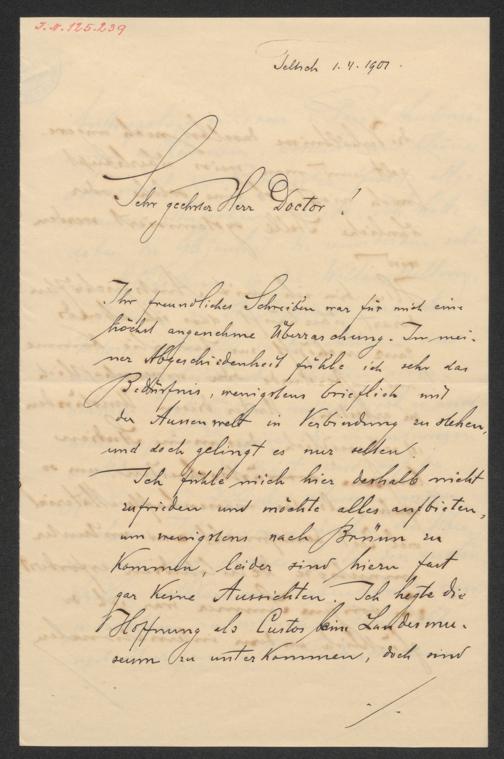 J.N. 125.239
Teltsch 1.4.1901.
Sehr geehrter Herr Doctor!
Ihr freundliches Schreiben war für mich eine
höchst angenehme Überraschung. In mei-
ner Abgeschiedenheit fühle ich sehr das
Bedürfnis, wenigstens brieflich mit
der Aussenwelt in Verbindung zu stehen,
und doch gelingt es nur selten.
Ich fühle mich hier deshalb nicht
zufrieden und möchte alles aufbieten,
um wenigstens nach Brünn zu
kommen, leider sind hiezu fast
gar keine Aussichten. Ich hegte die
Hoffnung als Custos beim Landesmu-
seum zu unterkommen, doch sind
./.